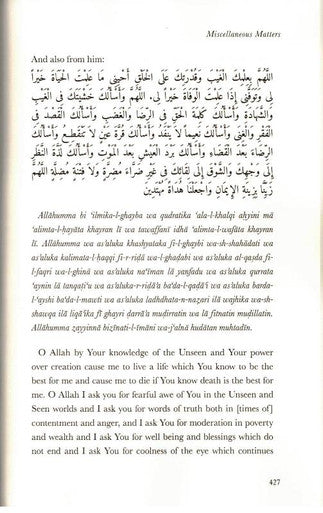 Miscellaneous Matters
And also from him:
اللَّهُمَّ بِعِلْمِكَ الْغَيْبَ وَقُدْرَتِكَ عَلَى الْخَلْقِ أَحْيِنِي مَا عَلِمْتَ الْحَيَاةَ خَيْراً
لِي وَتَوَفَّنِي إِذَا عَلِمْتَ الْوَفَاةَ خَيْراً لِي. اللَّهُمَّ وَأَسْأَلُكَ خَشْيَتَكَ فِي الْغَيْبِ
وَالشَّهَادَةِ وَأَسْأَلُكَ كَلِمَةَ الْحَقِّ فِي الرِّضَا وَالْغَضَبِ وَأَسْأَلُكَ الْقَصْدَ فِي
الْفَقْرِ وَالْغِنَى وَأَسْأَلُكَ نَعِيماً لَا يَنْفَدُ وَأَسْأَلُكَ قُرَّةَ عَيْنٍ لَا تَنْقَطِعُ وَأَسْأَلُكَ
الرِّضَاءَ بَعْدَ الْقَضَاءِ وَأَسْأَلُكَ بَرْدَ الْعَيْشِ بَعْدَ الْمَوْتِ وَأَسْأَلُكَ لَذَّةَ النَّظَرِ
إِلَى وَجْهِكَ وَالشَّوْقَ إِلَى لِقَائِكَ فِي غَيْرِ ضَرَّاءَ مُضِرَّةٍ وَلَا فِتْنَةٍ مُضِلَّةٍ اللَّهُمَّ
زَيِّنَّا بِزِينَةِ الْإِيمَانِ وَاجْعَلْنَا هُدَاةً مُهْتَدِينَ
Allāhumma bi 'ilmika-l-ghayba wa qudratika 'ala-l-khalqi aḥyini mā
'alimta-l-ḥayāta khayran lī wa tawaffanī idhā 'alimta-l-wafāta khayran
lī. Allāhumma wa as'aluka khashyataka fi-l-ghaybi wa-sh-shahādati wa
as'aluka kalimata-l-ḥaqqi fi-r-riḍā wa-l-ghaḍabi wa as'aluka al-qaṣda fi-
l-faqri wa-l-ghinā wa as'aluka na'īman lā yanfadu wa as'aluka qurrata
'aynin lā tanqaṭi'u wa as'aluka-r-riḍā'a ba'da-l-qaḍā'i wa as'aluka barda-
l-'ayshi ba'da-l-mawti wa as'aluka ladhdhata-n-nazari ilā wajhika wa-sh-
shawqa ilā liqā'ika fī ghayri ḍarrā'a muḍirratin wa lā fitnatin muḍillatin.
Allāhumma zayyinnā bizīnati-l-īmāni wa-j'alnā hudātan muhtadīn.
O Allah by Your knowledge of the Unseen and Your power
over creation cause me to live a life which You know to be the
best for me and cause me to die if You know death is the best for
me. O Allah I ask you for fearful awe of You in the Unseen and
Seen worlds and I ask you for words of truth both in [times of]
contentment and anger, and I ask You for moderation in poverty
and wealth and I ask You for well being and blessings which do
not end and I ask You for coolness of the eye which continues
427